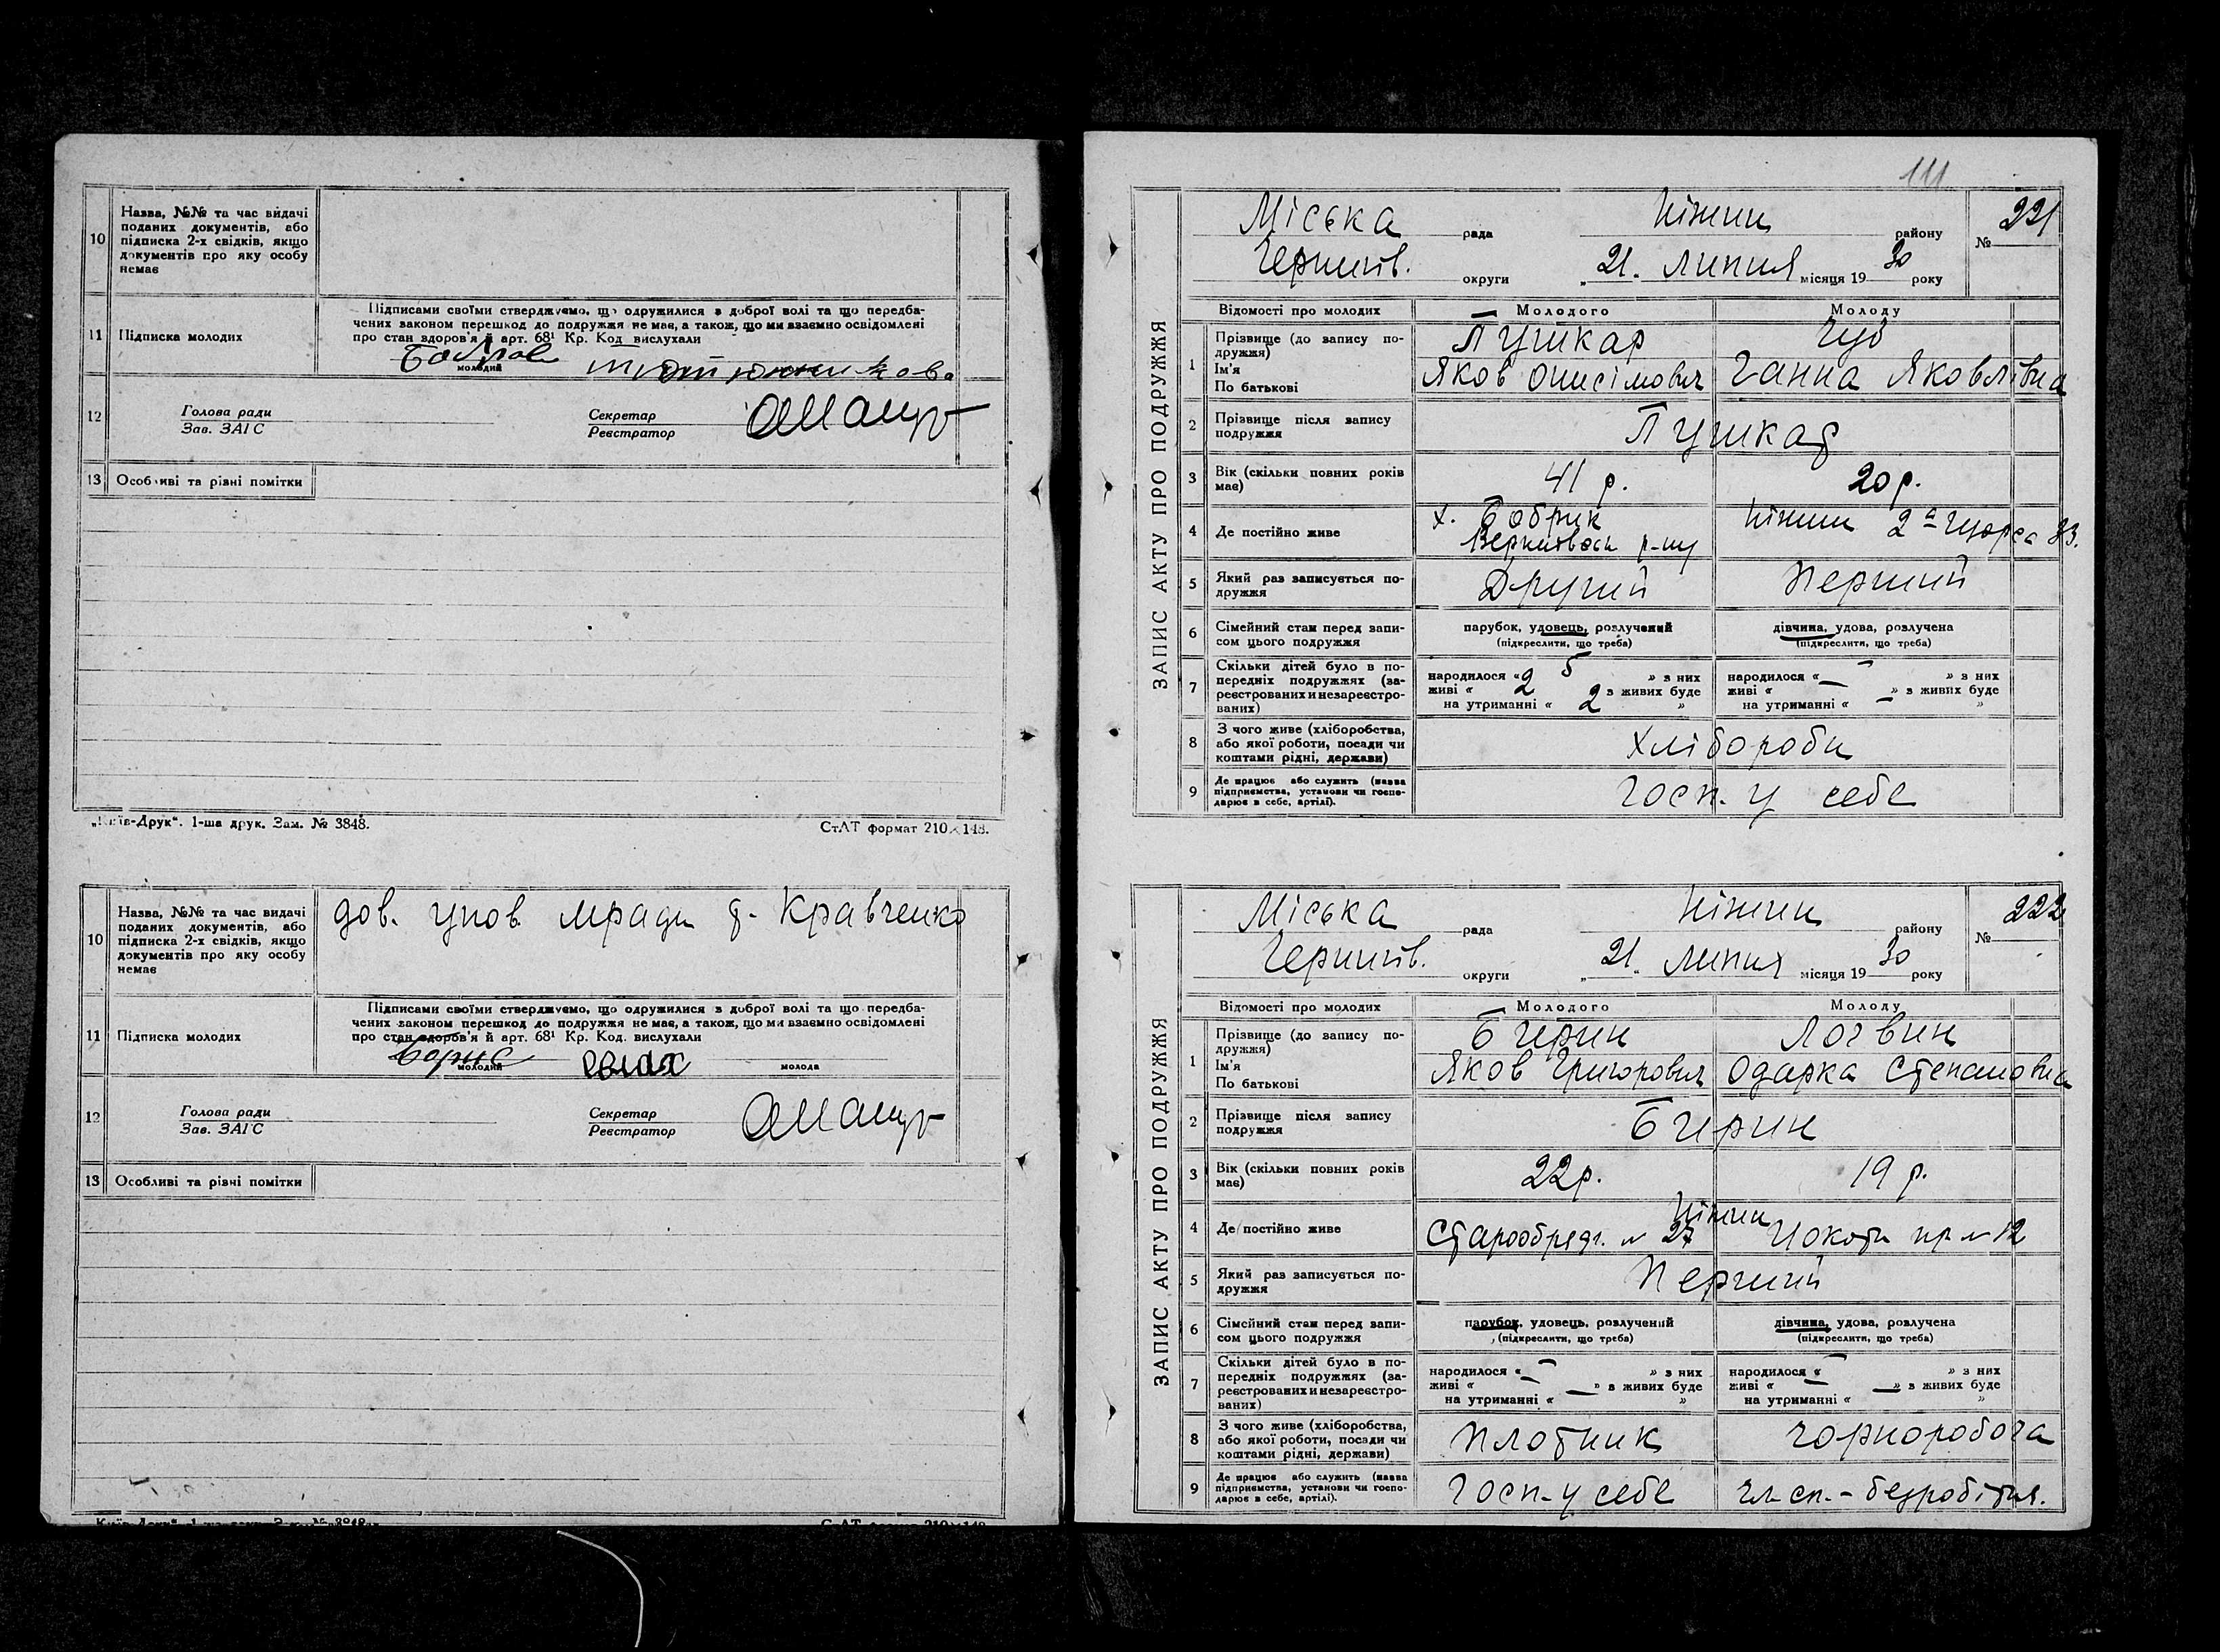 10
Назва, №№ та час видачі
поданих документів, або
підписка 2-х свідків, якщо
документів про яку особу
немає
11
Підписка молодих
Підписами своїми стверджуємо, що одружилися з доброї волі та що передба-
чених законом перешкод до подружжя не має, а також, що ми взаємно освідомлені
про стан здоров'я й арт. 68¹ Кр. Код вислухали
молодий
12
Голова ради
Зав. ЗАГС
Секретар
Реєстратор
13
Особливі та різні помітки
„Київ-Друк“. 1-ша друк. Зам. № 3848.
СтАТ формат 210×148.
10
Назва, №№ та час видачі
поданих документів, або
підписка 2-х свідків, якщо
документів про яку особу
немає
дов. упов. мради д. Кравченко
11
Підписка молодих
Підписами своїми стверджуємо, що одружилися з доброї волі та що передба-
чених законом перешкод до подружжя не має, а також, що ми взаємно освідомлені
про стан здоров'я й арт. 68¹ Кр. Код. вислухали
молодий
молода
12
Голова ради
Зав. ЗАГС
Секретар
Реєстратор
13
Особливі та різні помітки
111
ЗАПИС АКТУ ПРО ПОДРУЖЖЯ
Міська рада Ніжин району № 221
Чернигів. округи „21. Липня місяця 1930 року
Відомості про молодих
Молодого
Молоду
1
Прізвище (до запису по-
дружжя)
Ім'я
По батькові
Пушкар
Яков Онисімович
Чуб
Ганна Яковлівна
2
Прізвище після запису
подружжя
Пушкар
3
Вік (скільки повних років
має)
41 р.
20 р.
4
Де постійно живе
х. Бобрик
р-ну
Ніжин 2а Щорса 83.
5
Який раз записується по-
дружжя
Другий
Перший
6
Сімейний стан перед запи-
сом цього подружжя
парубок, удовець, розлучений
(підкреслити, що треба)
дівчина, удова, розлучена
(підкреслити, що треба)
7
Скільки дітей було в по-
передніх подружжях (за-
реєстрованих и незареєстро-
ваних)
народилося « 5 » з них
живі « 2 » з живих буде
на утриманні « 2 »
народилося « — » з них
живі « — » з живих буде
на утриманні « — »
8
З чого живе (хліборобства,
або якої роботи, посади чи
коштами рідні, держави)
Хлібороби
9
Де працює або служить (назва
підприємства, установи чи госпо-
дарює в себе, артілі).
Госп. у себе
ЗАПИС АКТУ ПРО ПОДРУЖЖЯ
Міська рада Ніжин району № 222
Чернигів. округи „21„ Липня місяця 1930 року
Відомості про молодих
Молодого
Молоду
1
Прізвище (до запису по-
дружжя)
Ім'я
По батькові
Яков Григорович
Логвин
Одарка Степановна
2
Прізвище після запису
подружжя
3
Вік (скільки повних років
має)
22 р.
19 р.
4
Де постійно живе
Ніжин
Старообрядч. № 27
№ 12
5
Який раз записується по-
дружжя
Перший
6
Сімейний стан перед запи-
сом цього подружжя
парубок, удовець, розлучений
(підкреслити, що треба)
дівчина, удова, розлучена
(підкреслити, що треба)
7
Скільки дітей було в по-
передніх подружжях (за-
реєстрованих и незареєстро-
ваних)
народилося « — » з них
живі « — » з живих буде
на утриманні « — »
народилося « — » з них
живі « — » з живих буде
на утриманні « — »
8
З чого живе (хліборобства,
або якої роботи, посади чи
коштами рідні, держави)
плотник
чорноробоча
9
Де працює або служить (назва
підприємства, установи чи госпо-
дарює в себе, артілі).
Госп. у себе
чл. сп. - безробітня.